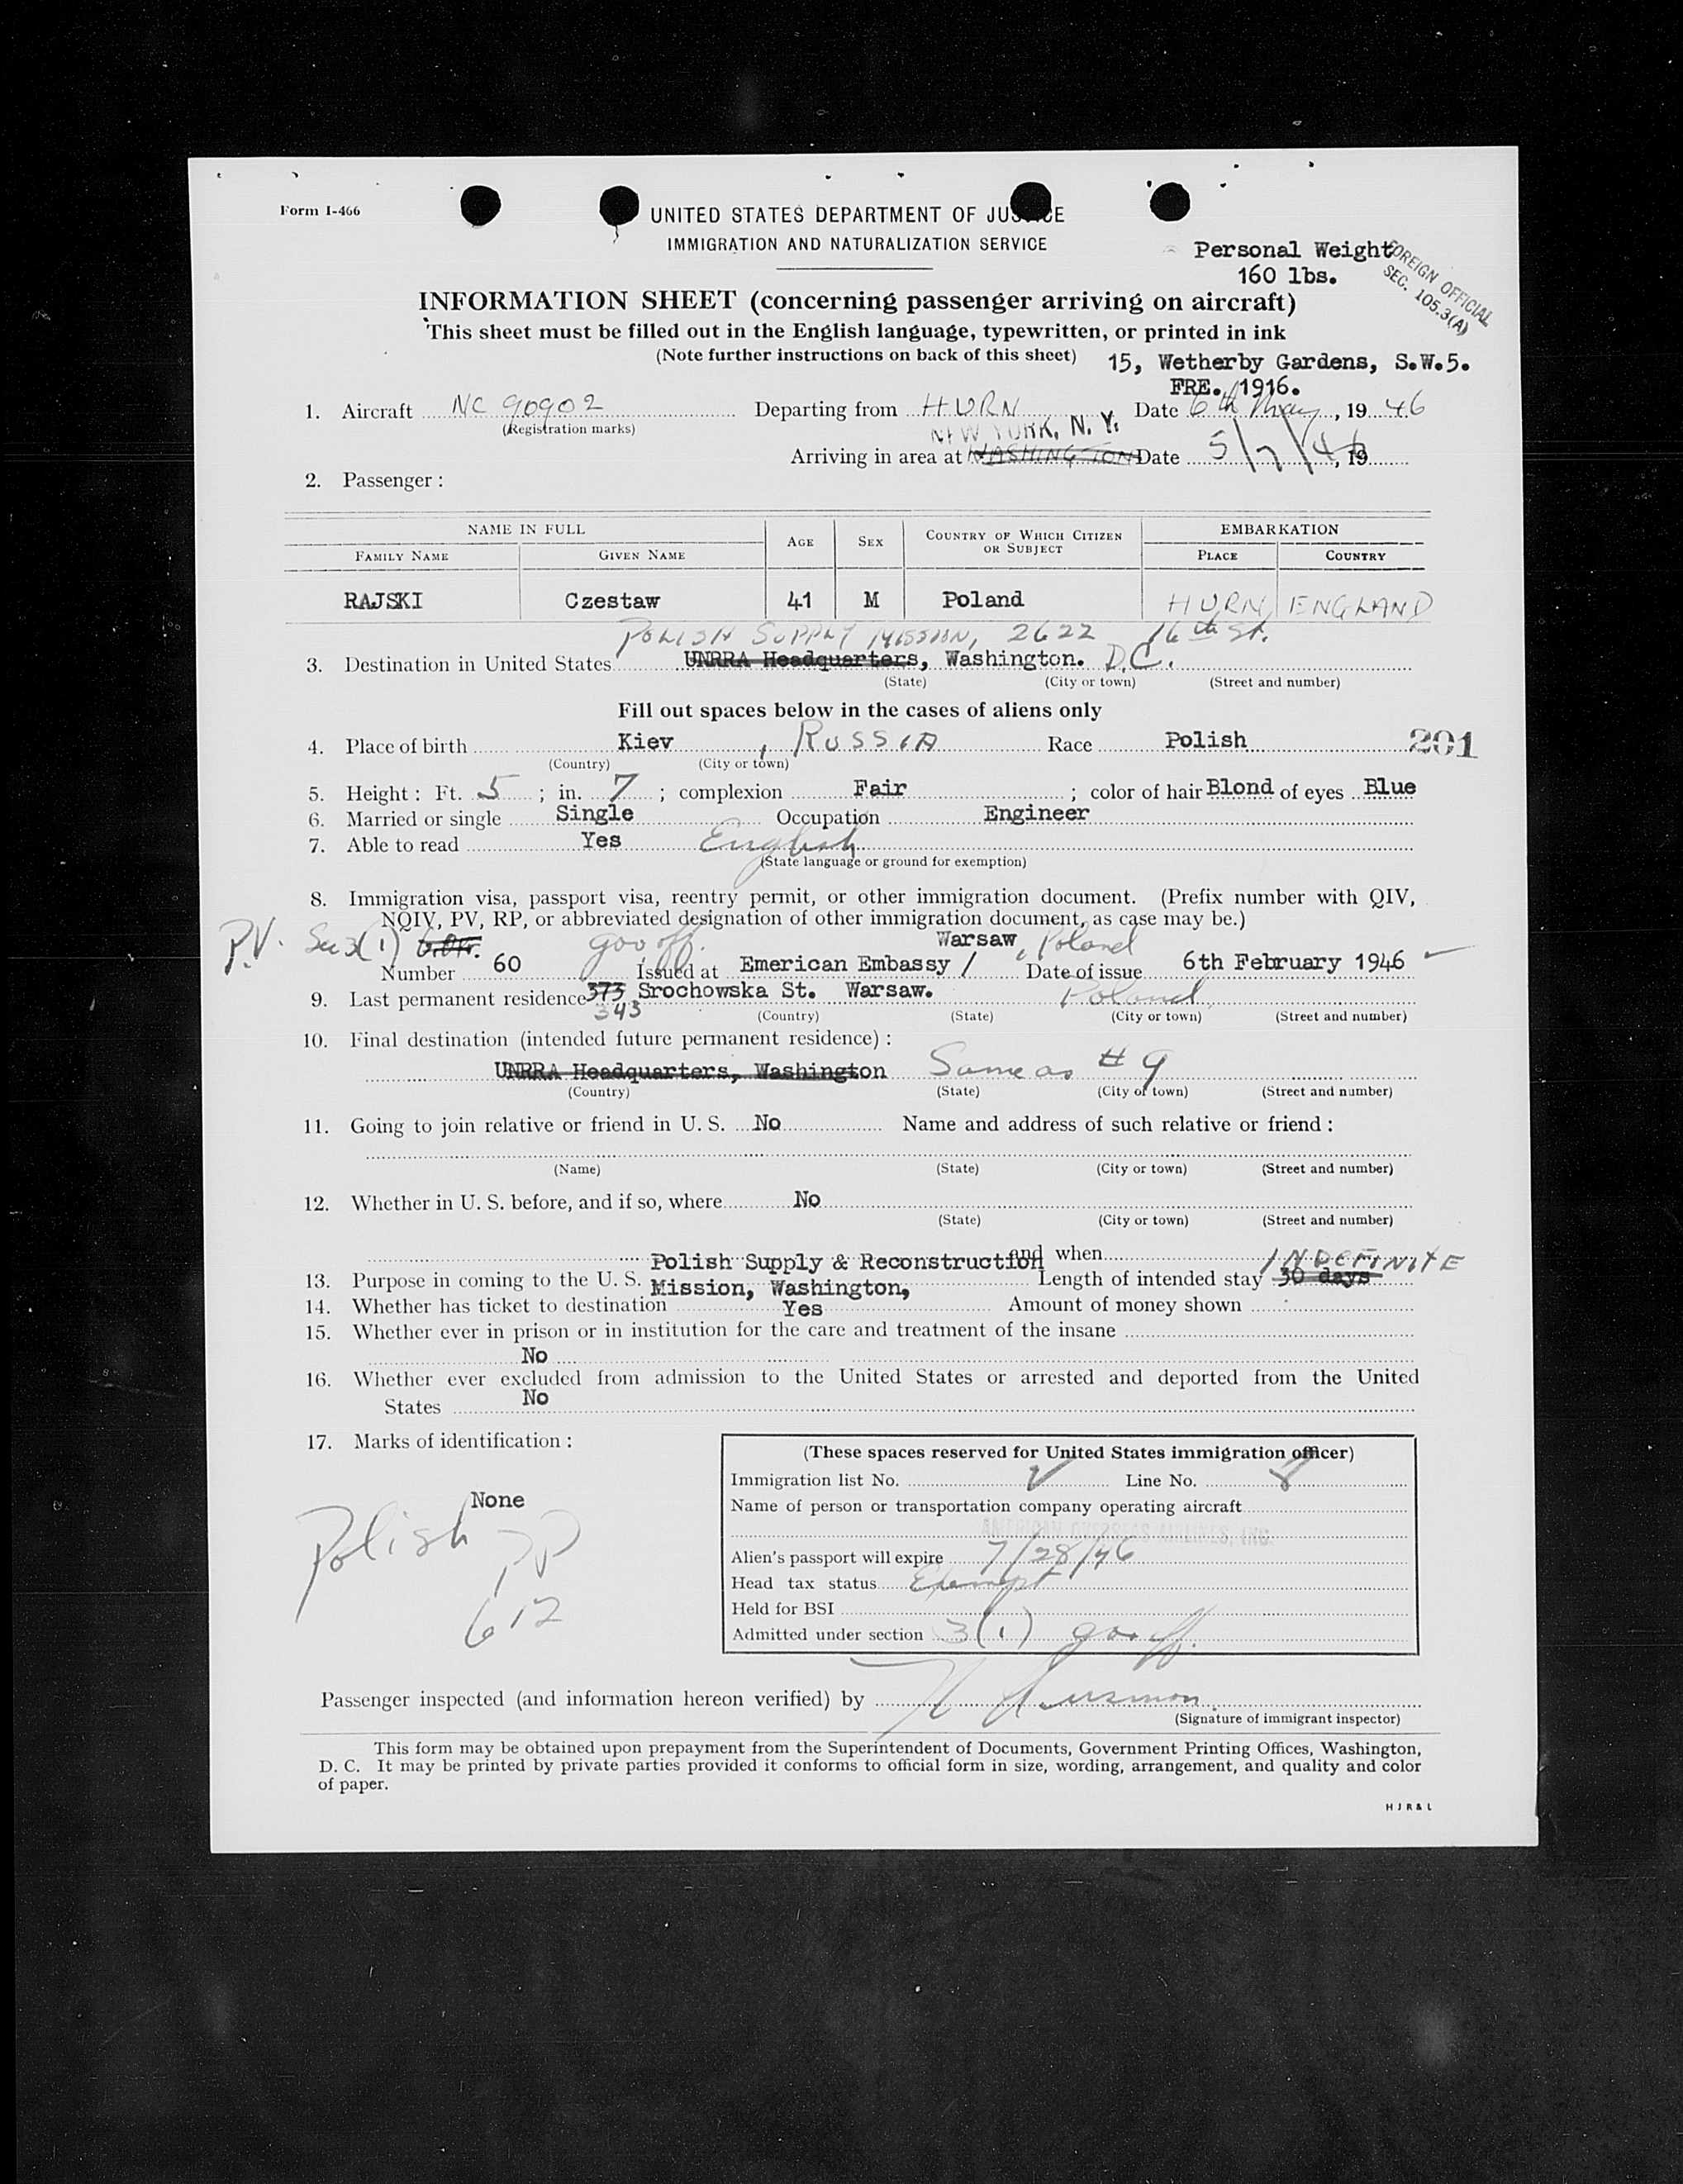 Form I-466
UNITED STATES DEPARTMENT OF JUSTICE
IMMIGRATION AND NATURALIZATION SERVICE
Personal Weight
160 lbs.
FOREIGN OFFICIAL
SEC. 105.3(A)
INFORMATION SHEET (concerning passenger arriving on aircraft)
This sheet must be filled out in the English language, typewritten, or printed in ink
(Note further instructions on back of this sheet)
15, Wetherby Gardens, S.W.5.
FRE. 1916.
1. Aircraft NC 90902 Departing from HURN Date 6th May, 19 46
(Registration marks)
NEW YORK, N. Y.
Arriving in area at WASHINGTON Date 5/7/46, 19
2. Passenger :
NAME IN FULL AGE SEX COUNTRY OF WHICH CITIZEN OR SUBJECT EMBARKATION
FAMILY NAME GIVEN NAME PLACE COUNTRY
RAJSKI Czestaw 41 M Poland HURN ENGLAND
POLISH SUPPLY MISSION, 2622 16th St.
3. Destination in United States UNRRA Headquarters, Washington. D.C.
(State) (City or town) (Street and number)
Fill out spaces below in the cases of aliens only
4. Place of birth Kiev, RUSSIA Race Polish 201
(Country) (City or town)
5. Height : Ft. 5 ; in. 7 ; complexion Fair ; color of hair Blond of eyes Blue
6. Married or single Single Occupation Engineer
7. Able to read Yes English
(State language or ground for exemption)
8. Immigration visa, passport visa, reentry permit, or other immigration document. (Prefix number with QIV,
NQIV, PV, RP, or abbreviated designation of other immigration document, as case may be.)
P.V. Sec 3(1) gov off. Warsaw, Poland
Number 60 Issued at Emerican Embassy / Date of issue 6th February 1946
9. Last permanent residence 373 Srochowska St. Warsaw. Poland
343
(Country) (State) (City or town) (Street and number)
10. Final destination (intended future permanent residence) :
UNRRA Headquarters, Washington Same as # 9
(Country) (State) (City or town) (Street and number)
11. Going to join relative or friend in U. S. No Name and address of such relative or friend :
(Name) (State) (City or town) (Street and number)
12. Whether in U. S. before, and if so, where No
(State) (City or town) (Street and number)
and when
Polish Supply & Reconstruction INDEFINITE
13. Purpose in coming to the U. S. Mission, Washington, Length of intended stay 30 days
14. Whether has ticket to destination Yes Amount of money shown
15. Whether ever in prison or in institution for the care and treatment of the insane
No
16. Whether ever excluded from admission to the United States or arrested and deported from the United
States No
17. Marks of identification :
None
Polish PP
612
(These spaces reserved for United States immigration officer)
Immigration list No. V Line No. 8
Name of person or transportation company operating aircraft
AMERICAN OVERSEAS AIRLINES, INC.
Alien's passport will expire 7/28/46
Head tax status Exempt
Held for BSI
Admitted under section 3(1) gov off.
Passenger inspected (and information hereon verified) by
(Signature of immigrant inspector)
This form may be obtained upon prepayment from the Superintendent of Documents, Government Printing Offices, Washington,
D. C. It may be printed by private parties provided it conforms to official form in size, wording, arrangement, and quality and color
of paper.
H J R & L